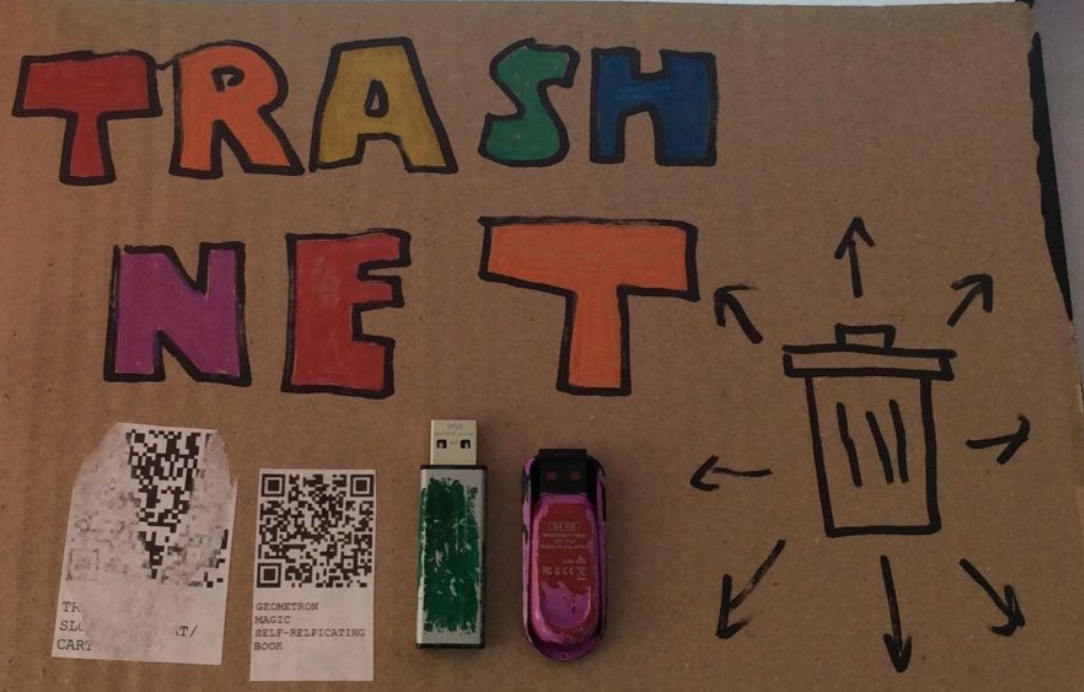 TRASH
NET
GEOMETRON
MAGIC
SELF-RELPICATING
BOOK